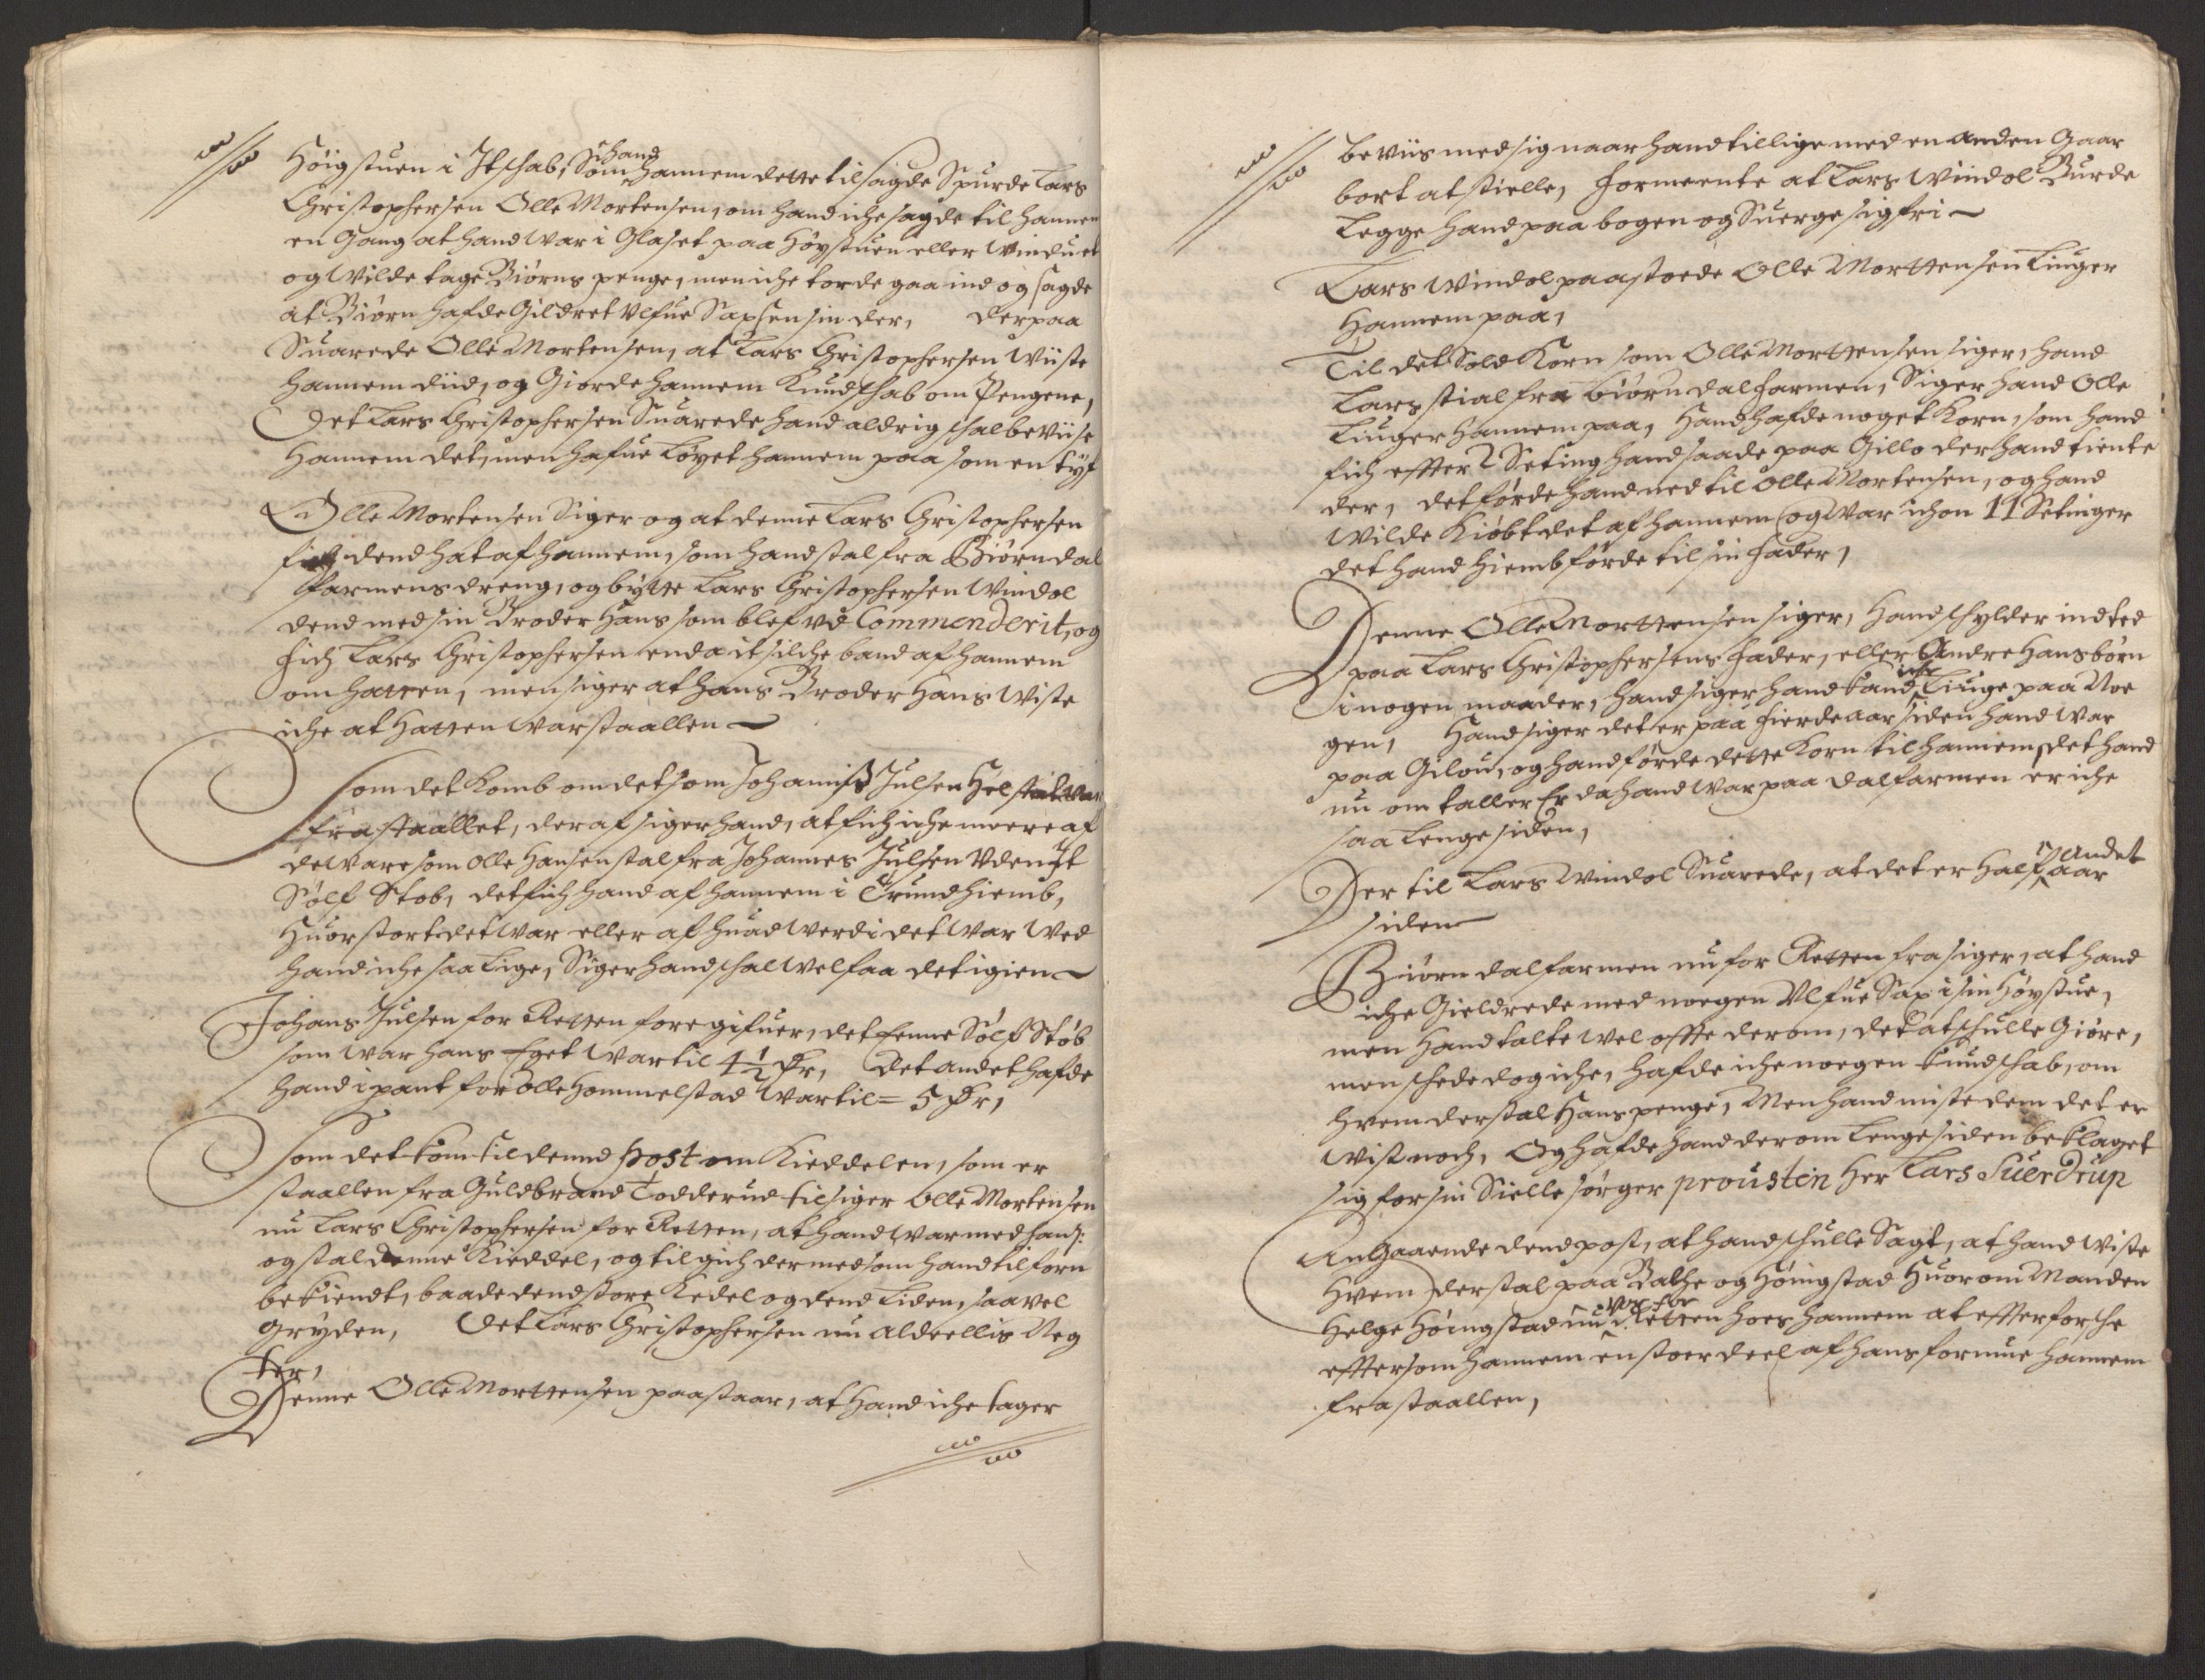 Höigstuen i It schab, Som hand hannem dette tilsagde Spurde Lars
Christophersen Olle Mortensen, om hand iche sagde til hannem
en Gang at hand war i Glaset paa Höystuen eller Winduet
og Wilde tage Biörns penge, men iche torde gaa ind og sagde
at Biörn hafde Gildret Ulfue Saxsen sin der, Derpaa
Suarede Olle Mortensen, at Lars Christophersen Wiiste
hannem diid, og Giorde hannem Kundschab om Pengene,
Det Lars Christophersen Suarede hand aldrig schal beviise
hannem det, men hafue Löyet hannem paa som en tyf
Olle Mortensen Siger og at denne Lars Christophersen
fich dend hat af hannem, som hand stal fra Biörn dal
farmens dreng, og bytte Lars Christophersen Windol
dend med sin Broder Hans som blef ud Commenderit, og
fich Lars Christophersen enda it silche band af hannem
om hatten, men siger at hans Broder Hans Wiste
iche at hatten war staallen
Som det komb om det som Johannis Julsen Helstad war
frastaallet, deraf siger hand, at fich iche meere af
de ware som Olle Hansen stal fra Johannes Julsen uden It
Sölf Stob, det fich hand af hannem i Trundhiemb,
Huor stort det war eller af huad werdi det war wed
hand iche saa Lige, Siger hand schal wel faa det igien
Johans Julsen for Retten foregifuer, det eenne Sölf Stob
som war hans Eget war til 4½ Dr, Det andet hafde
hand i pant for Olle Hommelstad war til = 5 Dr,
Som det kom til denne post om Kieddelen, som er
staallen fra Guldbrand Todderud tilsiger Olle Mortensen
nu Lars Christophersen for Retten, at hand war med ham:
og stal denne Kieddel, og til gich dermed som hand tilforn
bekiendt, baade dend store Kedel og dend Liden, saa vel
gryden, Det Lars Christophersen nu aldeellis Neg
ter,
Denne Olle Morttensen paastaar, at hand iche tager
beviis med sig naar hand tillige med en anden Gaar
bort at stielle, formeente at Lars Windol Burde
Legge hand paa bogen og Suerge sig fri
Lars Windol paastoede Olle Morttensen Liuger
Hannem paa,
Til det Sold Korn som Olle Morttensen siger, hand
Lars stial fra Biörn dalfarmen, Siger hand Olle
Liuger hannem paa, Hand hafde noget Korn, som hand
fich effter 2 Seting hand saade paa Gillo der hand tiente
der, det förde hand ned til Olle Mortensen, og hand
Wilde Kiöbt det af hannem og war ichon 11 Setinger
det hand hiemb förde til sin fader,
Denne Olle Morttensen siger, Hand schylder indted
paa Lars Christophersens fader, eller Andre Hans börn
i nogen maader, hand siger hand kand iche Liuge paa Noe
gen, Hand siger det er paa fierde aar siden hand war
paa Gilou, og hand förde dette Korn til hannem, det hand
nu om taller Er da hand war paa dalfarmen er iche
saa Lenge siden,
Der til Lars Windol Suarede, at det er half andet aar
siden
Biörn dalfarmen nu for Retten frasiger, at hand
iche Gieldrede med noegen Ulfue Sax i sin Höystue,
men Hand talte wel offte derom, det at schulle Giöre,
men schede dog iche, hafde iche noegen kundschab, om
hvem der stal Hans penge, Men hand miste dem det er
wist noch, Og hafde hand derom Lenge siden beklaget
sig for sin Sielle sörger prousten her Lars Suerdrup
Angaaende dend post, at hand schulle Sagt, at hand wiste
hvem der stal paa Balche og Höingstad Huorom Manden
Helge Höingstad nu var for Retten hoes hannem at effterforsche
effter som hannem en stoer deel af hans formue hannem
frastaallen,